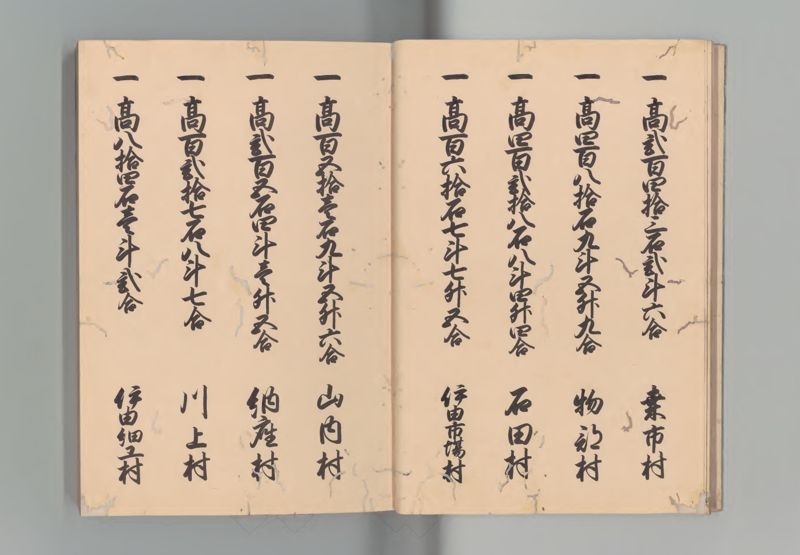 一 高弐百四拾三石弐斗六合 桑市村
一 高四百八拾石九斗五升九合 物部村
一 高四百弐拾八石八斗四升四合 石田村
一 高百六拾石七斗七升五合 伊由市場村
一 高百五拾壱石九斗五升六合 山内村
一 高弐百五石四斗壱升五合 納座村
一 高百弐拾七石八斗七合 川上村
一 高八拾四石壱斗弐合 伊由細工村